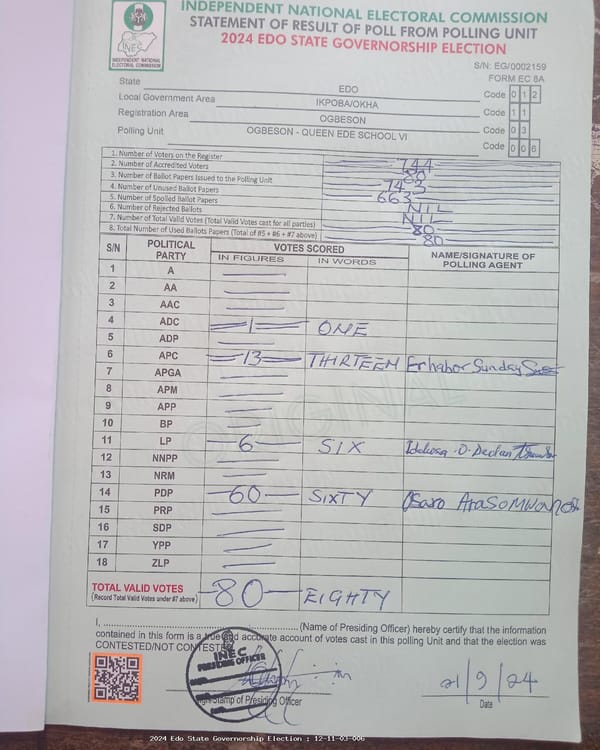 INDEPENDENT NATIONAL ELECTORAL COMMISSION
STATEMENT OF RESULT OF POLL FROM POLLING UNIT
2024 EDO STATE GOVERNORSHIP ELECTION
INEC
INDEPENDENT NATIONAL
ELECTORAL COMMISSION
S/N: EG/0002159
FORM EC 8A
State EDO Code 0 1 2
Local Government Area IKPOBA/OKHA Code 1 1
Registration Area OGBESON Code 0 3
Polling Unit OGBESON - QUEEN EDE SCHOOL VI Code 0 0 6
1. Number of Voters on the Register 744
2. Number of Accredited Voters 80
3. Number of Ballot Papers Issued to the Polling Unit 743
4. Number of Unused Ballot Papers 663
5. Number of Spoiled Ballot Papers NIL
6. Number of Rejected Ballots NIL
7. Number of Total Valid Votes (Total Valid Votes cast for all parties) 80
8. Total Number of Used Ballots Papers (Total of #5 + #6 + #7 above) 80
S/N POLITICAL PARTY VOTES SCORED NAME/SIGNATURE OF POLLING AGENT
IN FIGURES IN WORDS
1 A
2 AA
3 AAC
4 ADC 1 ONE
5 ADP
6 APC 13 THIRTEEN Erhabor Sunday
7 APGA
8 APM
9 APP
10 BP
11 LP 6 SIX
12 NNPP
13 NRM
14 PDP 60 SIXTY Osaro
15 PRP
16 SDP
17 YPP
18 ZLP
TOTAL VALID VOTES 80 EIGHTY
(Record Total Valid Votes under #7 above)
I, (Name of Presiding Officer) hereby certify that the information
contained in this form is a true and accurate account of votes cast in this polling Unit and that the election was
CONTESTED/NOT CONTESTED
INEC
PRESIDING OFFICER
21/9/24
Stamp of Presiding Officer
Date
ORIGINAL
2024 Edo State Governorship Election : 12-11-03-006